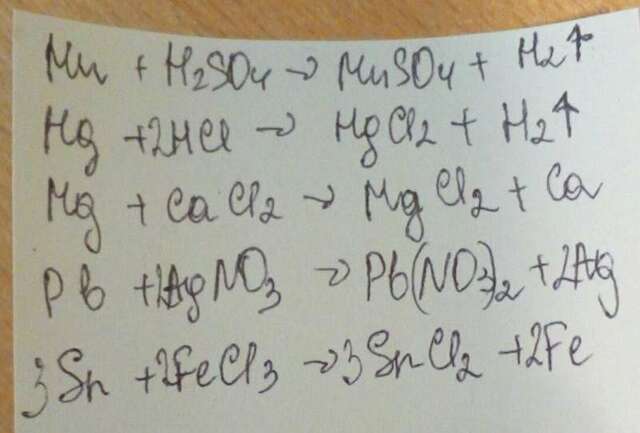 Mn + H2SO4 → MnSO4 + H2↑
Hg + 2HCl → HgCl2 + H2↑
Mg + CaCl2 → MgCl2 + Ca
Pb + 2AgNO3 → Pb(NO3)2 + 2Ag
3Sn + 2FeCl3 → 3SnCl2 + 2Fe